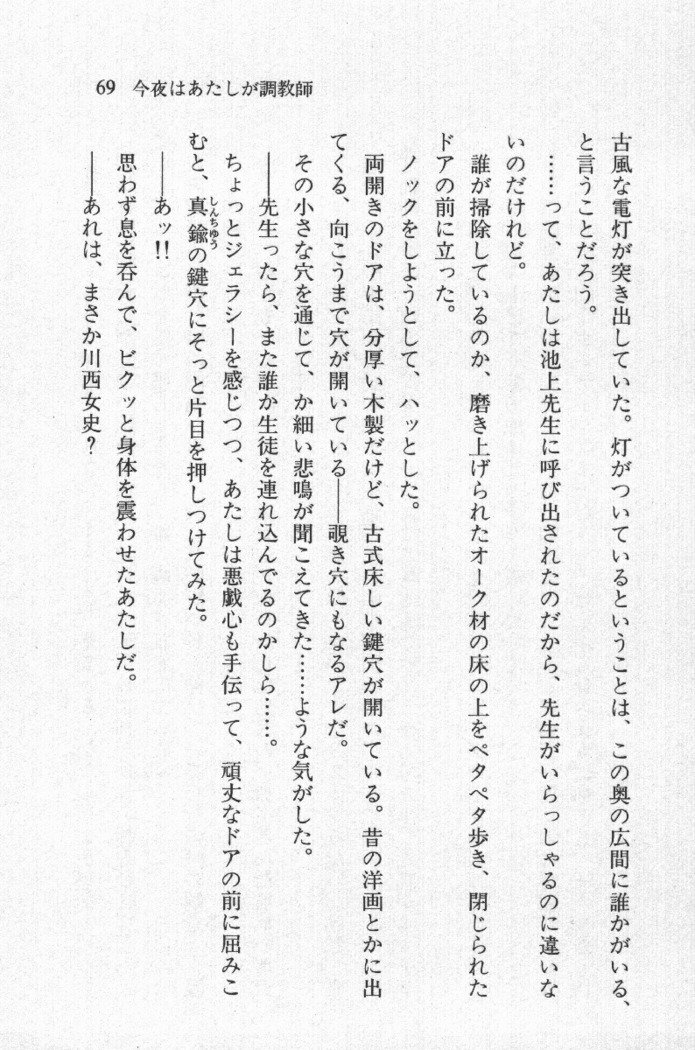 69 今夜はあたしが調教師
古風な電灯が突き出していた。灯がついているということは、この奥の広間に誰かがいる、
と言うことだろう。
……って、あたしは池上先生に呼び出されたのだから、先生がいらっしゃるのに違いな
いのだけれど。
誰が掃除しているのか、磨き上げられたオーク材の床の上をペタペタ歩き、閉じられた
ドアの前に立った。
ノックをしようとして、ハッとした。
両開きのドアは、分厚い木製だけど、古式床しい鍵穴が開いている。昔の洋画とかに出
てくる、向こうまで穴が開いている――覗き穴にもなるアレだ。
その小さな穴を通じて、か細い悲鳴が聞こえてきた……ような気がした。
――先生ったら、また誰か生徒を連れ込んでるのかしら……。
ちょっとジェラシーを感じつつ、あたしは悪戯心も手伝って、頑丈なドアの前に屈みこ
むと、真鍮しんちゆうの鍵穴にそっと片目を押しつけてみた。
――あッ!!
思わず息を呑んで、ビクッと身体を震わせたあたしだ。
――あれは、まさか川西女史?